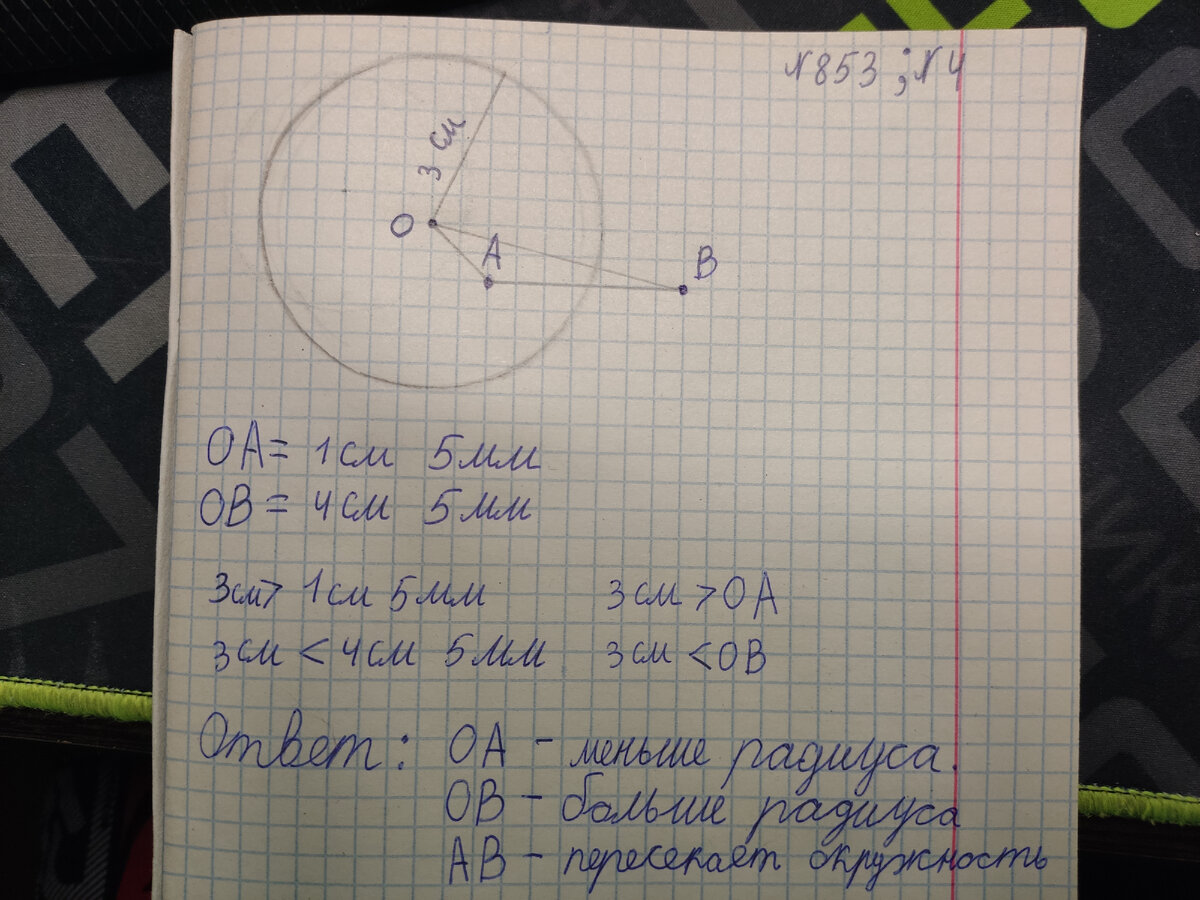 №853 ; №4
3 см
О
А
В
ОА = 1 см 5 мм
ОВ = 4 см 5 мм
3 см > 1 см 5 мм 3 см > ОА
3 см < 4 см 5 мм 3 см < ОВ
Ответ: ОА - меньше радиуса.
ОВ - больше радиуса
АВ - пересекает окружность